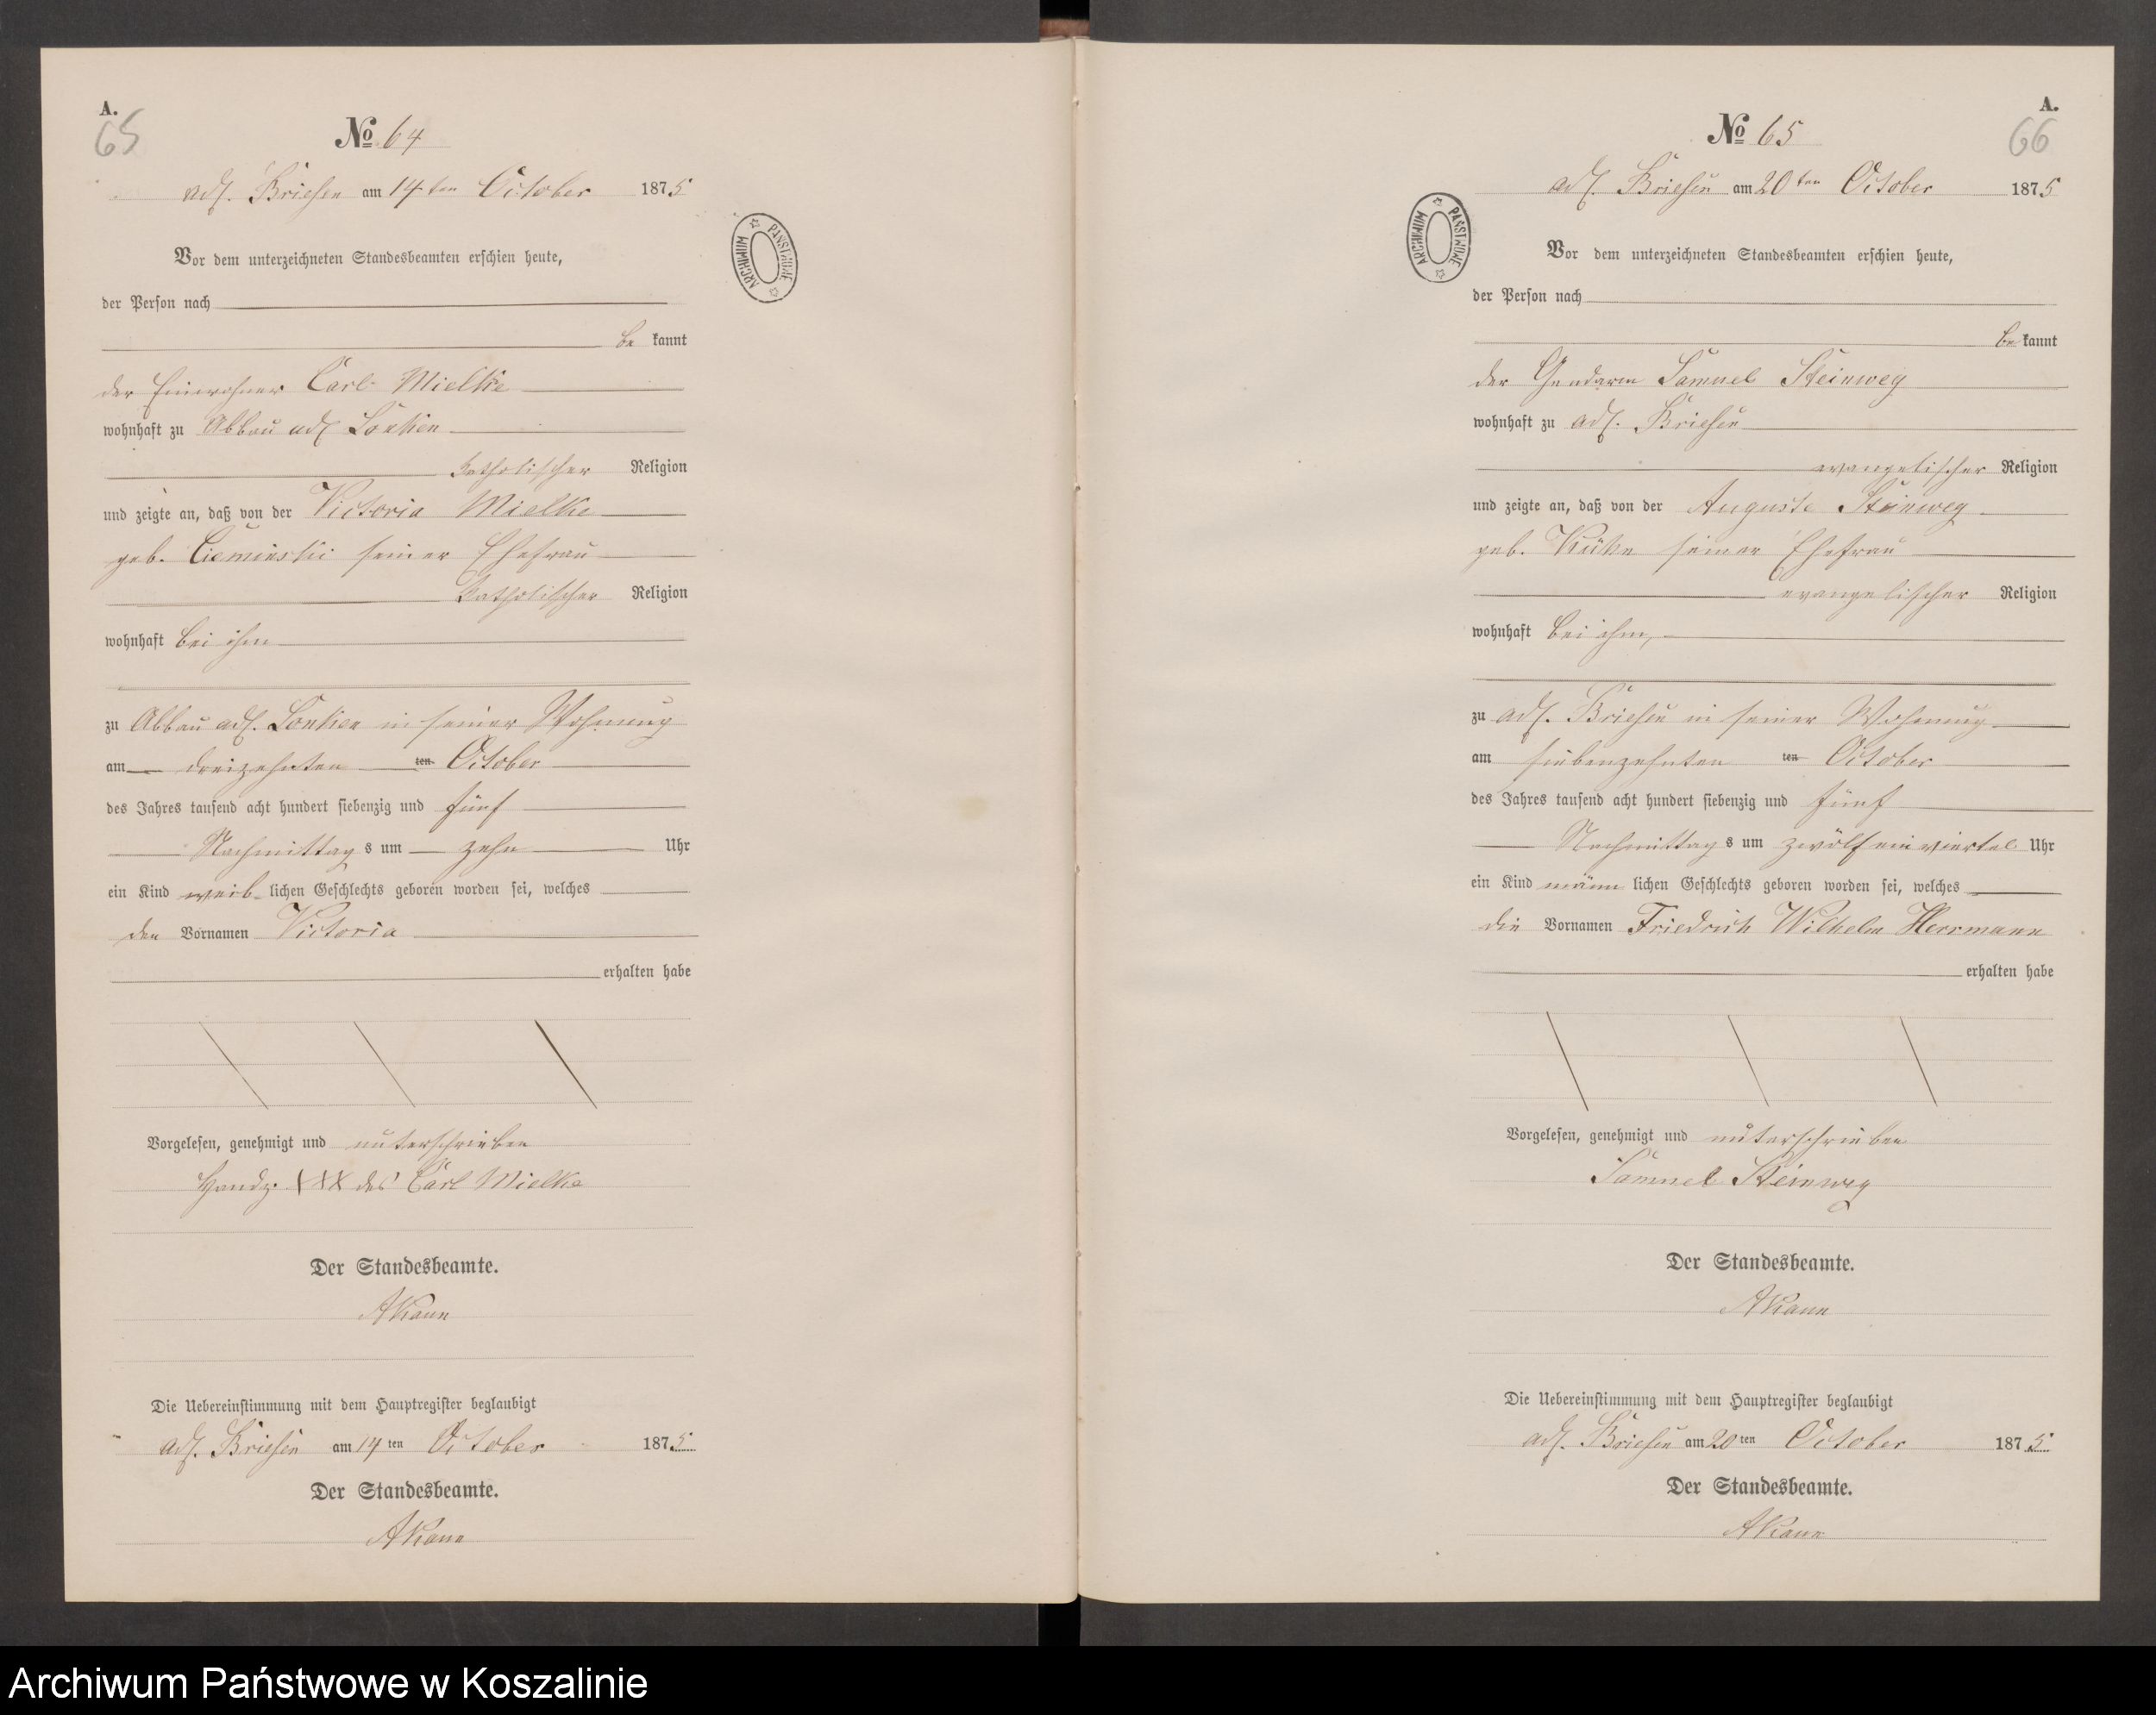 A.
65
No 64
adl. Briesen am 14ten October 1875
ARCHIWUM PAŃSTWOWE
Vor dem unterzeichneten Standesbeamten erschien heute,
der Person nach
be kannt
der Einwohner Carl Mielke
wohnhaft zu Abbau adl Lonken
katholischer Religion
und zeigte an, daß von der Victoria Mielke
geb. Cieminski seiner Ehefrau
katholischer Religion
wohnhaft bei ihm
zu Abbau adl. Lonken in seiner Wohnung
am dreizehnten ten October
des Jahres tausend acht hundert siebenzig und fünf
Nachmittag s um zehn Uhr
ein Kind weib lichen Geschlechts geboren worden sei, welches
den Vornamen Victoria
erhalten habe
Vorgelesen, genehmigt und unterschrieben
Handz. XXX des Carl Mielke
Der Standesbeamte.
AKann
Die Uebereinstimmung mit dem Hauptregister beglaubigt
adl. Briesen am 14 ten October 1875
Der Standesbeamte.
AKann
A.
66
No 65
adl. Briesen am 20ten October 1875
ARCHIWUM PAŃSTWOWE
Vor dem unterzeichneten Standesbeamten erschien heute,
der Person nach
be kannt
der Gendarm Samuel Steinweg
wohnhaft zu adl. Briesen
evangelischer Religion
und zeigte an, daß von der Auguste Steinweg
geb. Küke seiner Ehefrau
evangelischer Religion
wohnhaft bei ihm,
zu adl. Briesen in seiner Wohnung
am siebenzehnten ten October
des Jahres tausend acht hundert siebenzig und fünf
Nachmittag s um zwölf ein viertel Uhr
ein Kind männ lichen Geschlechts geboren worden sei, welches
die Vornamen Friedrich Wilhelm Herrmann
erhalten habe
Vorgelesen, genehmigt und unterschrieben
Samuel Steinweg
Der Standesbeamte.
AKann
Die Uebereinstimmung mit dem Hauptregister beglaubigt
adl. Briesen am 20 ten October 1875
Der Standesbeamte.
AKann
Archiwum Państwowe w Koszalinie